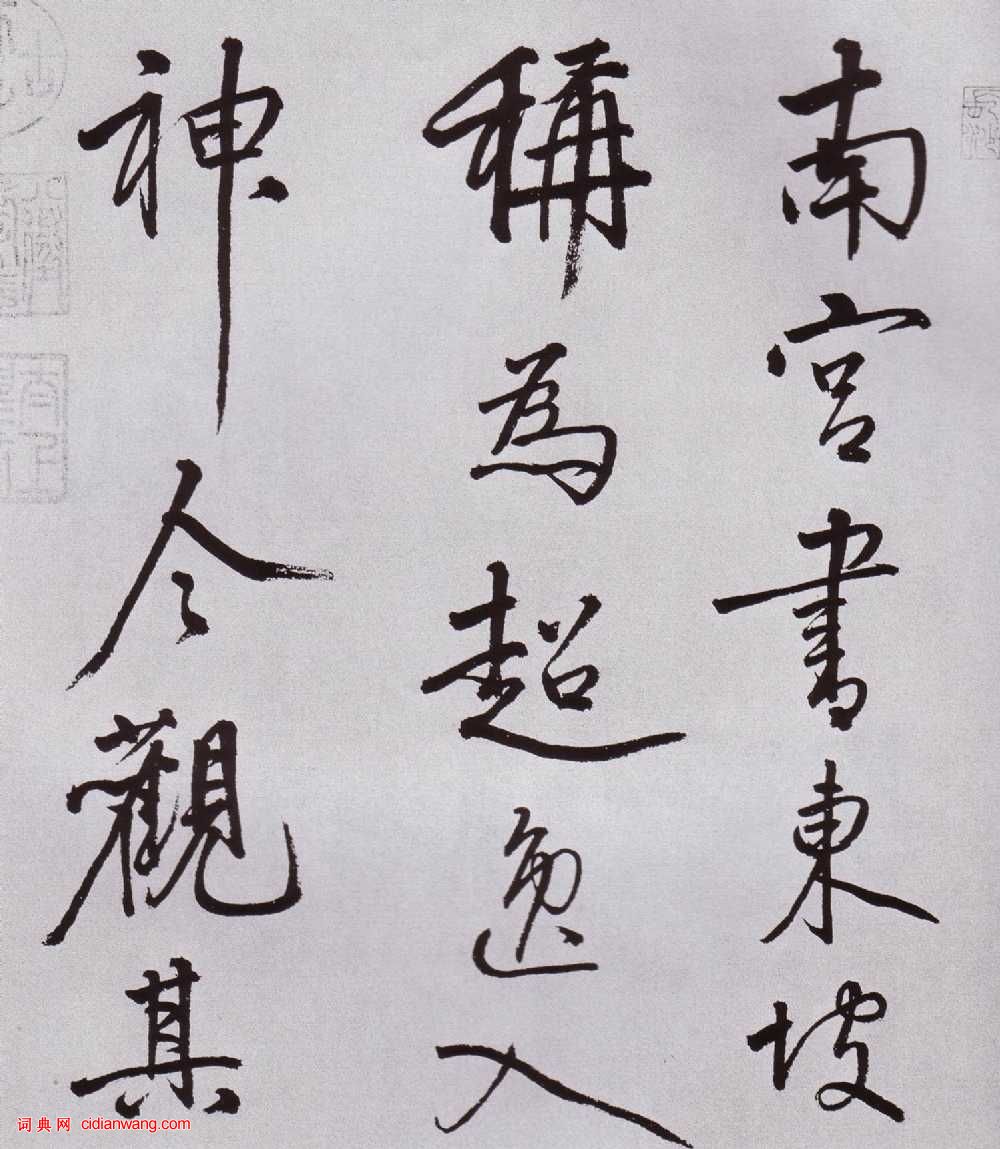 南宮書東坡
稱為超逸入
神今觀其
词典网 cidianwang.com